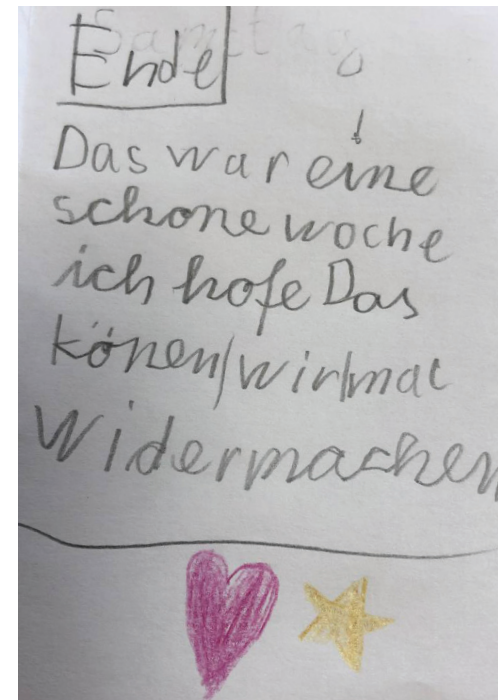 Samstag
Ende
Das war eine
schone woche
ich hofe Das
könen/wir/mal
Widermachen